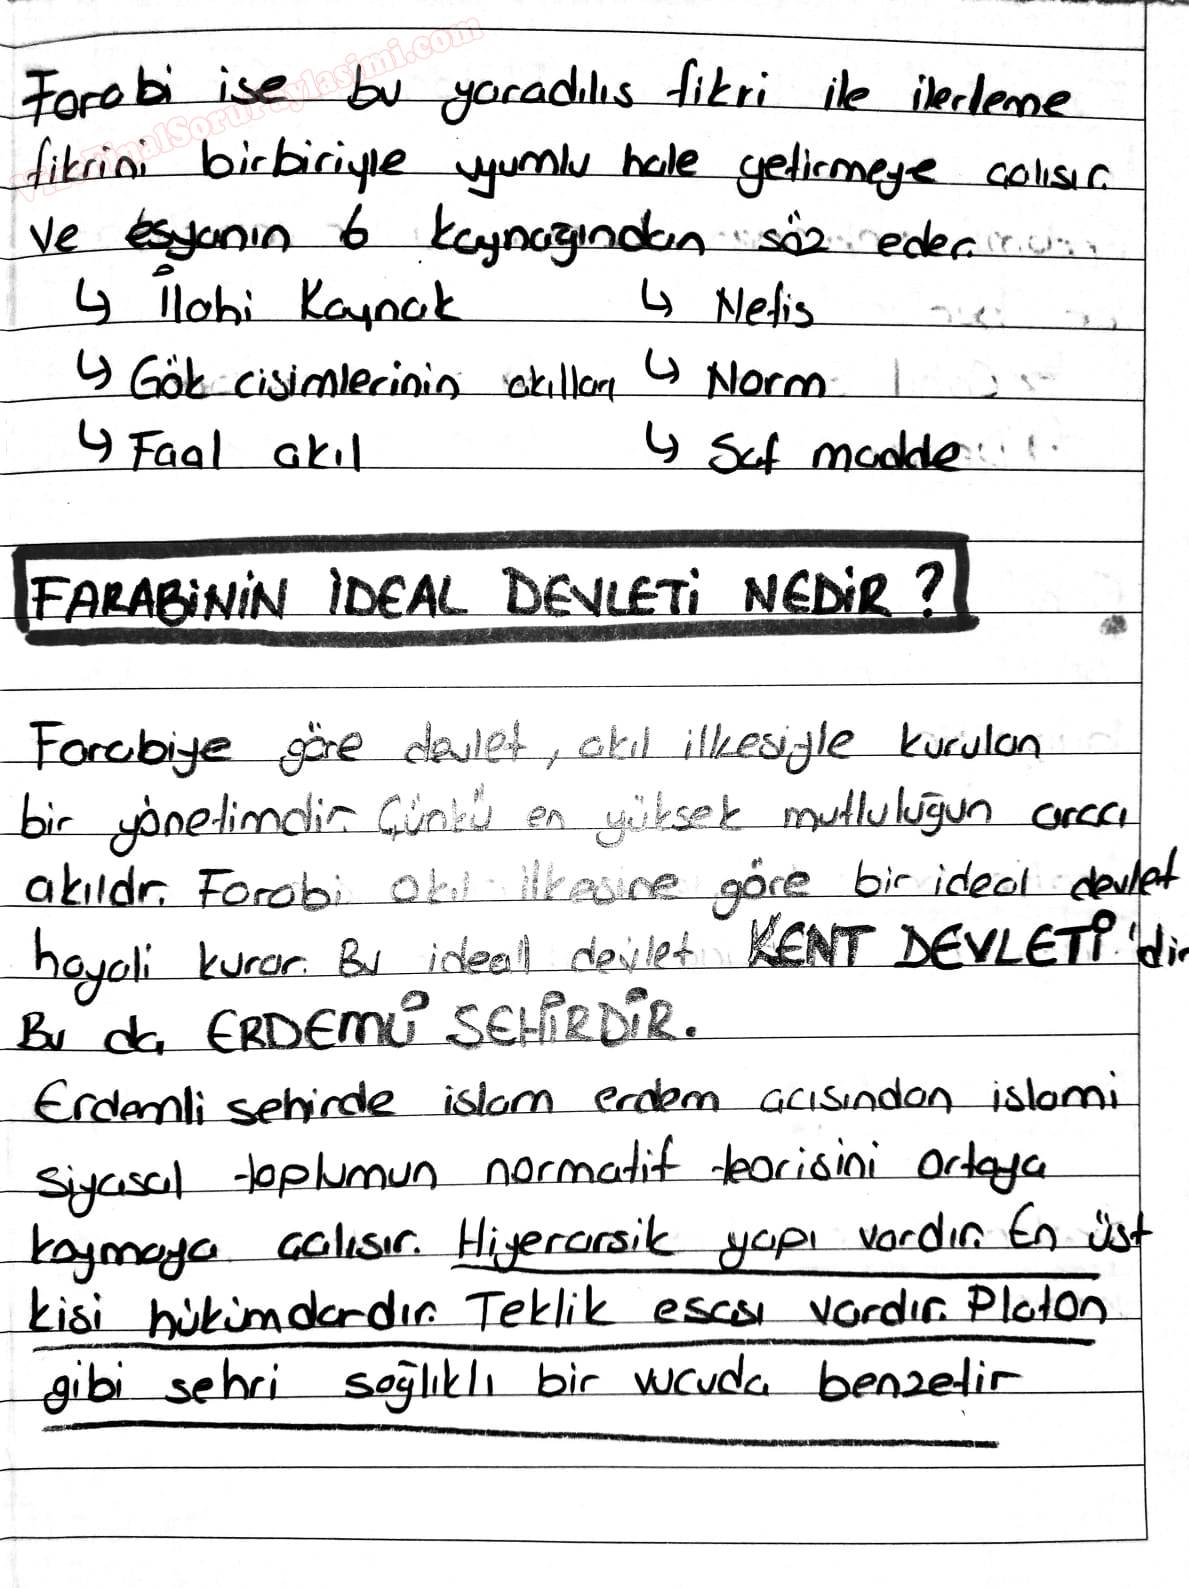 Farabi ise bu yaradılıs fikri ile ilerleme
fikrini birbiriyle uyumlu hale getirmeye calısır.
ve esyanın 6 kaynagından söz eder.
↳ İlahi Kaynak ↳ Nefis
↳ Gök cisimlerinin akılları ↳ Norm
↳ Faal akıl ↳ Saf madde
FARABİNİN İDEAL DEVLETİ NEDİR ?
Farabiye göre devlet, akıl ilkesiyle kurulan
bir yönetimdir. Çünkü en yüksek mutluluğun aracı
akıldır. Farabi akıl ilkesine göre bir ideal devlet
hayali kurar. Bu ideal devlet KENT DEVLETİ'dir
Bu da ERDEMLİ SEHİRDİR.
Erdemli sehirde islam erdem acısından islami
siyasal toplumun normatif teorisini ortaya
koymaya calısır. Hiyerarsik yapı vardır. En üst
kisi hükümdardır. Teklik esası vardır. Platon
gibi sehri sağlıklı bir vucuda benzetir